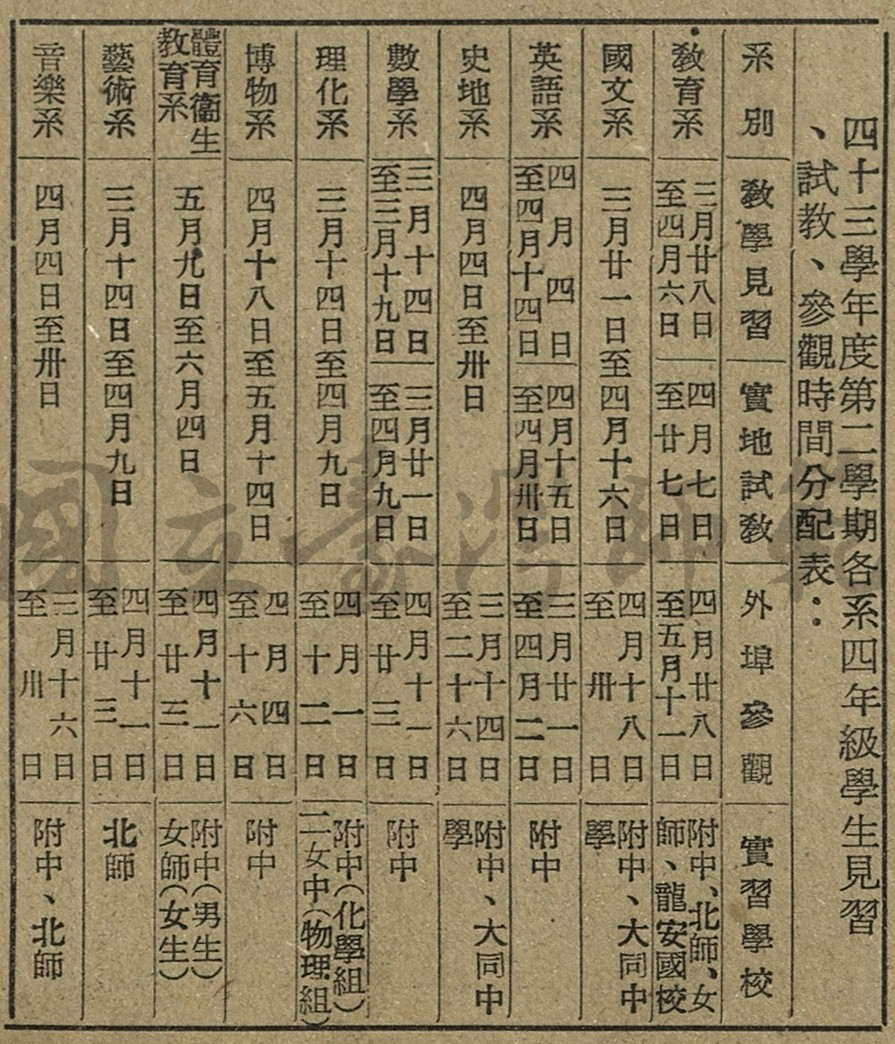 四十三學年度第二學期各系四年級學生見習
、試教、參觀時間分配表：
系別
教學見習
實地試教
外埠參觀
實習學校
教育系
三月廿八日
至四月六日
四月七日
至廿七日
四月廿八日
至五月十一日
附中、北師、女
師、龍安國校
國文系
三月廿一日至四月十六日
四月十八日
至卅日
附中、大同中
學
英語系
四月四日
至四月十四日
四月十五日
至四月卅日
三月廿一日
至四月二日
附中
史地系
四月四日至卅日
三月十四日
至二十六日
附中、大同中
學
數學系
三月十四日
至三月十九日
三月廿一日
至四月九日
四月十一日
至廿三日
附中
理化系
三月十四日至四月九日
四月一日
至十二日
附中（化學組）
二女中（物理組）
博物系
四月十八日至五月十四日
四月四日
至十六日
附中
體育衞生
教育系
五月九日至六月四日
四月十一日
至廿三日
附中（男生）
女師（女生）
藝術系
三月十四日至四月九日
四月十一日
至廿三日
北師
音樂系
四月四日至卅日
三月十六日
至卅日
附中、北師
國立臺灣師